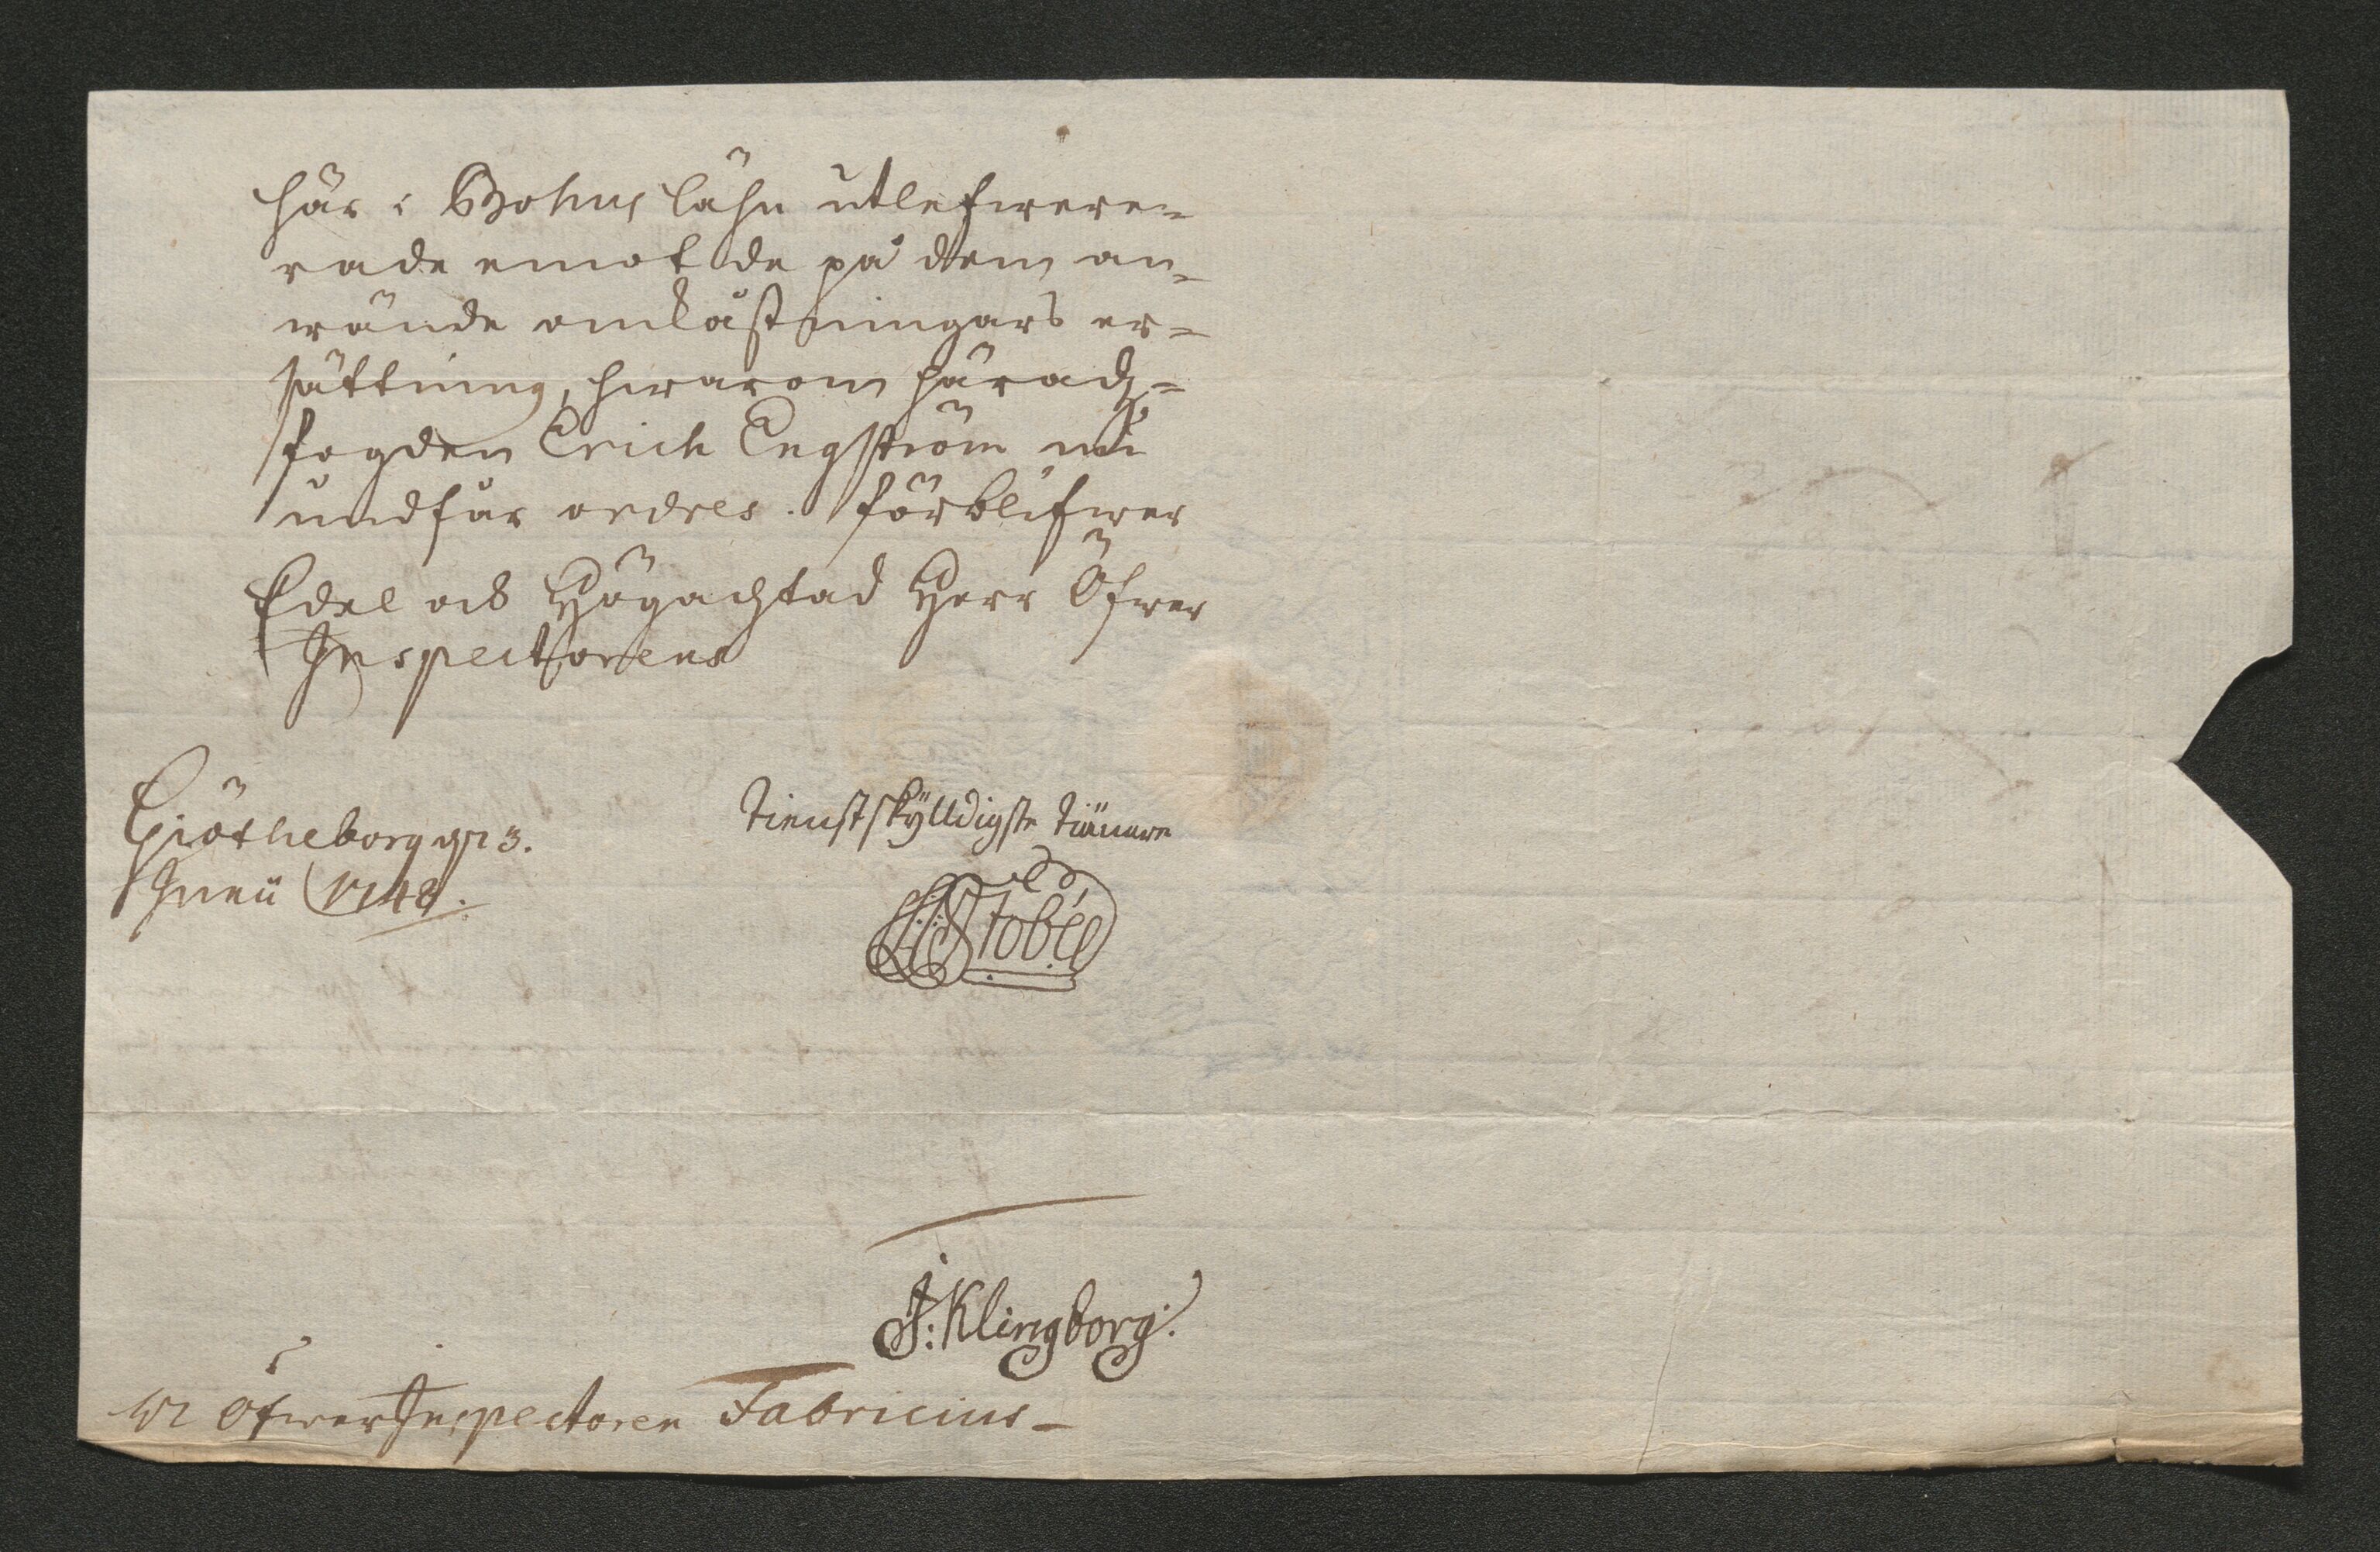 här i Bohus lähn utlefwere=
rade emot de på dem an=
wände omkåstningars er=
sättning, hwarom härads=
fogden Erich Engström nu
undfår ordres. förblifwer
Edel och Högachtad Herr Öfwer
Inspectorens
Giötheborg d. 3.
Junii 1748.
tienstskylldigste tiänare
Stobée
J: Klingborg:
Öfwer Inspectoren Fabricius